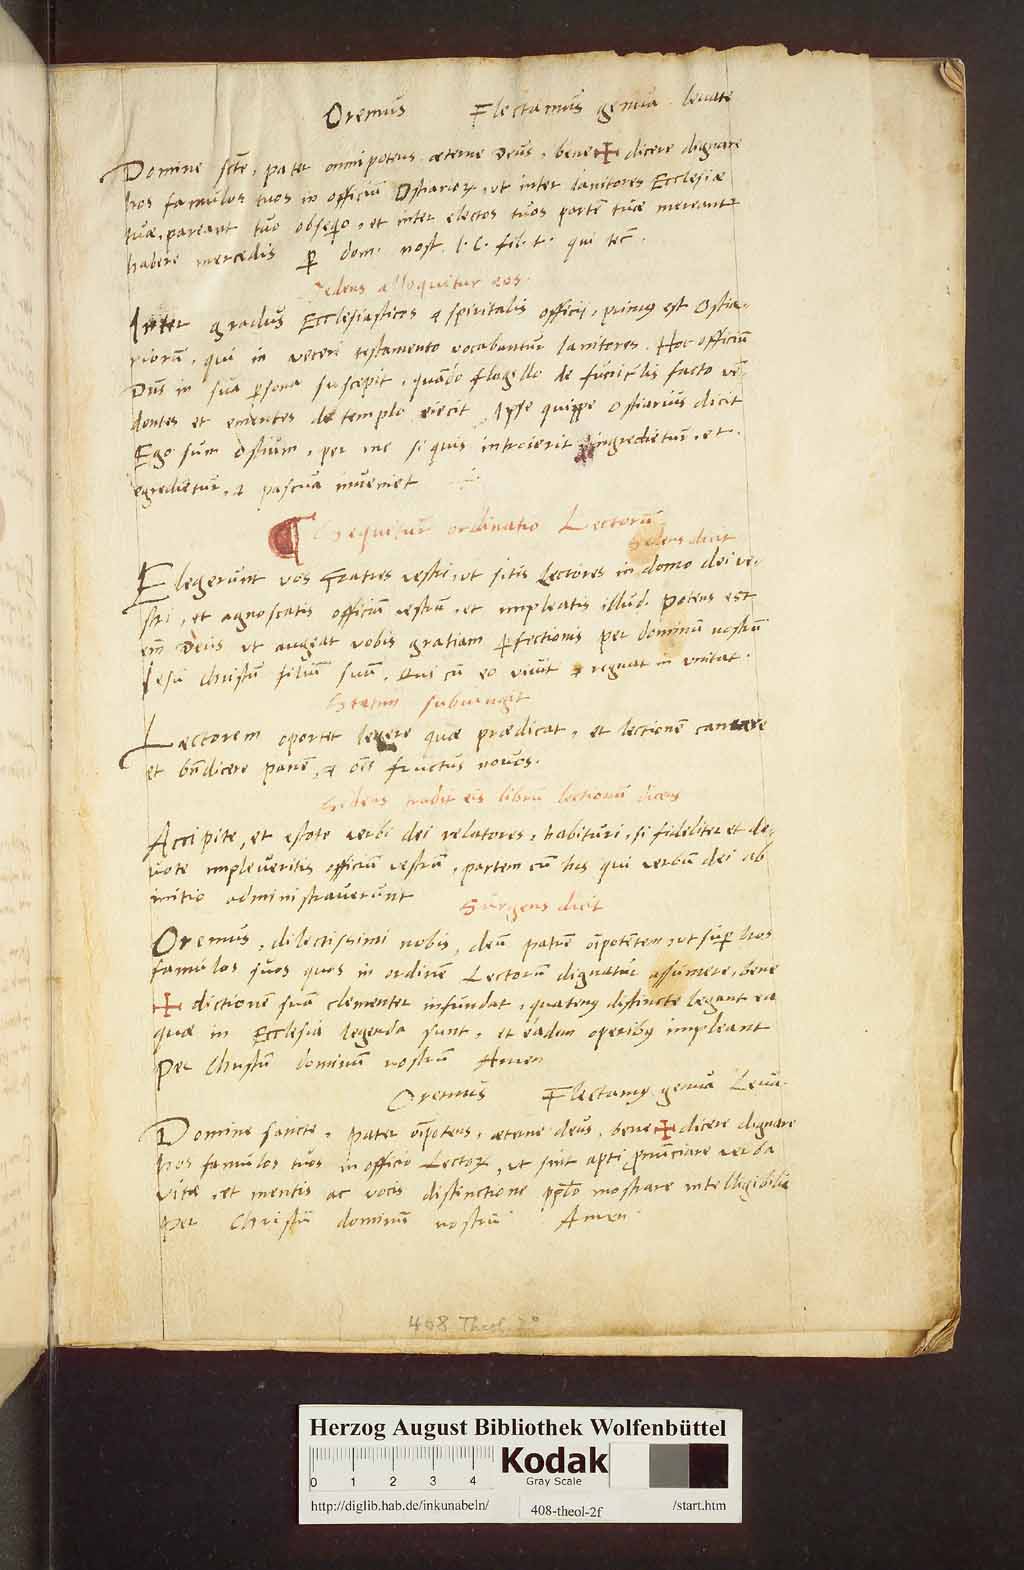 Oremus Flectamus genua. levate
Domine scte, pater omnipotens æterne Deus, bene✠dicere dignare
hos famulos tuos in officiū Ostiarioꝝ, ut inter Ianitores Ecclesiæ
tuæ, pareant tuo obsequio, et inter electos tuos partē tuæ mereantur
habere mercedis ꝑ dom. nost. I. C. fil. t. qui tec̄.
Sedens alloquitur eos.
Inter gradus Ecclesiasticos & spiritalis officij, primus est Ostia-
riorū, qui in veteri testamento vocabantur Ianitores. Hoc officiū
Dn̄s in sua ꝑsona suscepit, quādo flagello de funiculis facto vē-
dentes et ementes de templo eiecit. Ipse quippe ostiarius dicit
Ego sum ostium, per me si quis introierit ingredietur, et
egredietur, & pascua inveniet
¶ Sequitur ordinatio Lectorū
Sedens dicit
Elegerunt vos fratres vestri, ut sitis Lectores in domo dei ve-
stri, et agnoscatis officiū vestrū, et impleatis illud. Potens est
em̄ Deus ut augeat vobis gratiam ꝑfectionis per dominū nostrū
Iesū Christū filiū suū. Qui cū eo vivit & regnat in unitat.
Statim subiungit
Lectorem oportet legere quæ prædicat, et lectionē cantare
et bn̄dicere panē, & oēs fructus novos.
Sedens tradit eis librū lectionū dicens
Accipite, et estote verbi dei relatores, habituri, si fideliter et de-
vote impleveritis officiū vestrū, partem cū his qui verbū dei ab
initio administraverunt
Surgens dicit
Oremus, dilectissimi nobis, deū patrē oīpotētem, ut suꝑ hos
famulos suos quos in ordinē Lectorū dignatur assumere, bene
✠ dictionē suā clementer infundat, quatenus distincte legant ea
quæ in Ecclesia legenda sunt, et eadem operibus impleant
Per Christū dominū nostrū Amen
Oremus Flectamus genua Leva.
Domine sancte, pater oīpotens, æterne deus, bene✠dicere dignare
hos famulos tuos in officio Lectoꝝ, ut sint apti ꝓnunciare verba
vitæ, et mentis ac vocis distinctione pplo mostrare intelligibilia
per Christū dominū nostrū Amen
408 Theol. 2°
Herzog August Bibliothek Wolfenbüttel
0 1 2 3 4 Kodak
Gray Scale
http://diglib.hab.de/inkunabeln/ 408-theol-2f /start.htm